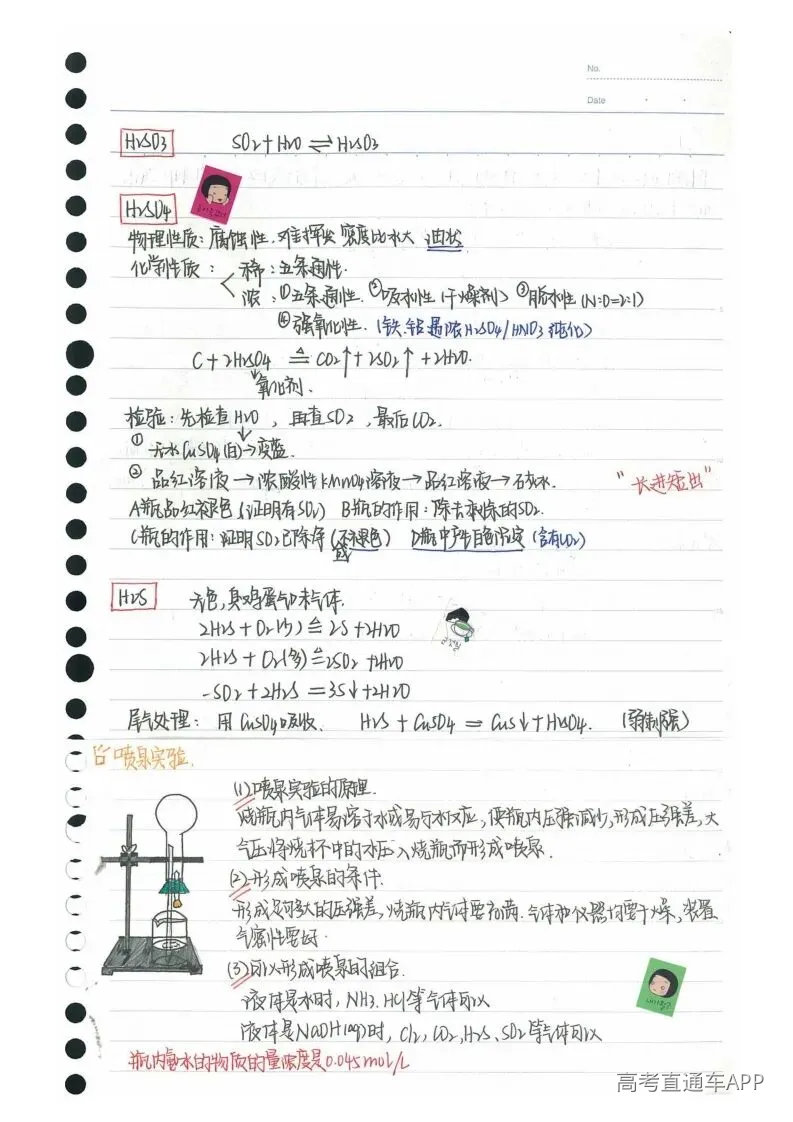 No.
Date
H2SO3 SO2+H2O⇌H2SO3
H2SO4
物理性质:腐蚀性.难挥发 密度比水大 油状
化学性质: 稀:五条通性.
浓:①五条通性.②吸水性(干燥剂)③脱水性(H:O=2:1)
④强氧化性.(铁.铝遇浓H2SO4/HNO3钝化)
C+2H2SO4 ≜ CO2↑+2SO2↑+2H2O.
氧化剂.
检验:先检查H2O,再查SO2,最后CO2.
①无水CuSO4(白)→变蓝.
②品红溶液→浓酸性KMnO4溶液→品红溶液→石灰水. "长进短出"
A瓶品红褪色(证明有SO2) B瓶的作用:除去剩余的SO2.
C瓶的作用:证明SO2已除净(不褪色) D瓶中产生白色沉淀(含有CO2)
H2S 无色,臭鸡蛋气味气体.
2H2S+O2(少)≜2S+2H2O
2H2S+O2(多)≜2SO2+2H2O
SO2+2H2S=3S↓+2H2O
尾气处理:用CuSO4吸收. H2S+CuSO4=CuS↓+H2SO4.(弱制强)
喷泉实验.
(1)喷泉实验的原理.
烧瓶内气体易溶于水或易与水反应,使瓶内压强减少,形成压强差,大
气压将烧杯中的水压入烧瓶而形成喷泉.
(2)形成喷泉的条件.
形成足够大的压强差,烧瓶内气体要充满.气体和仪器均要干燥,装置
气密性要好.
(3)可以形成喷泉的组合.
液体是水时,NH3.HCl等气体可以
液体是NaOH(aq)时,Cl2,CO2,H2S、SO2等气体可以
瓶内氨水的物质的量浓度是0.045mol/L
高考直通车APP